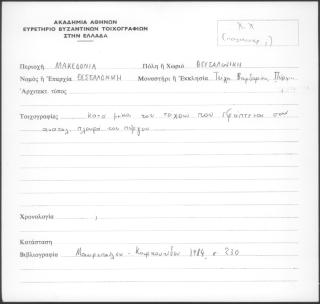 ΑΚΑΔΗΜΙΑ ΑΘΗΝΩΝ
ΕΥΡΕΤΗΡΙΟ ΒΥΖΑΝΤΙΝΩΝ ΤΟΙΧΟΓΡΑΦΙΩΝ
ΣΤΗΝ ΕΛΛΑΔΑ
Περιοχή ΜΑΚΕΔΟΝΙΑ Πόλη ἤ Χωριό ΘΕΣΣΑΛΟΝΙΚΗ
Νομός ἤ Ἐπαρχία ΘΕΣΣΑΛΟΝΙΚΗ Μοναστήρι ἤ Ἐκκλησία Τείχη Βαρδαρίου
Ἀρχιτεκτ. τύπος
Τοιχογραφίες κατά μήκος του τοίχου που εφάπτεται στην
ανατολ. πλευρά του πύργου
Χρονολογία
Κατάσταση
Βιβλιογραφία 1984, σ. 230